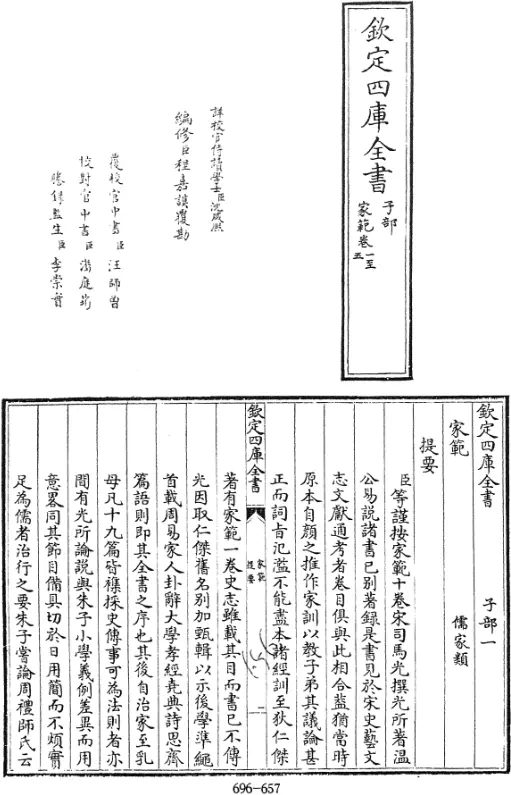 欽定四庫全書
子部
家範卷一至五
詳校官侍讀學士臣沈咸熙
編修臣程嘉謨覆勘
覆校官中書臣汪師曾
校對官中書臣潘庭筠
謄録監生臣李崇實
欽定四庫全書 子部一
家範 儒家類
提要
臣等謹按家範十卷宋司馬光撰光所著温
公易説諸書已别著録是書見於宋史藝文
志文獻通考者卷目俱與此相合葢猶當時
原本自顔之推作家訓以教子弟其議論甚
正而詞㫖汜濫不能盡本諸經訓至狄仁傑
欽定四庫全書 家範 提要 一
著有家範一卷史志雖載其目而書已不傳
光因取仁傑舊名别加甄輯以示後學凖繩
首載周易家人卦辭大學孝經堯典詩思齊
篇語則即其全書之序也其後自治家至乳
母凡十九篇皆襍採史傳事可為法則者亦
間有光所論説與朱子小學義例差異而用
意畧同其節目備具切於日用簡而不煩實
足為儒者治行之要朱子嘗論周禮師氏云
696-657